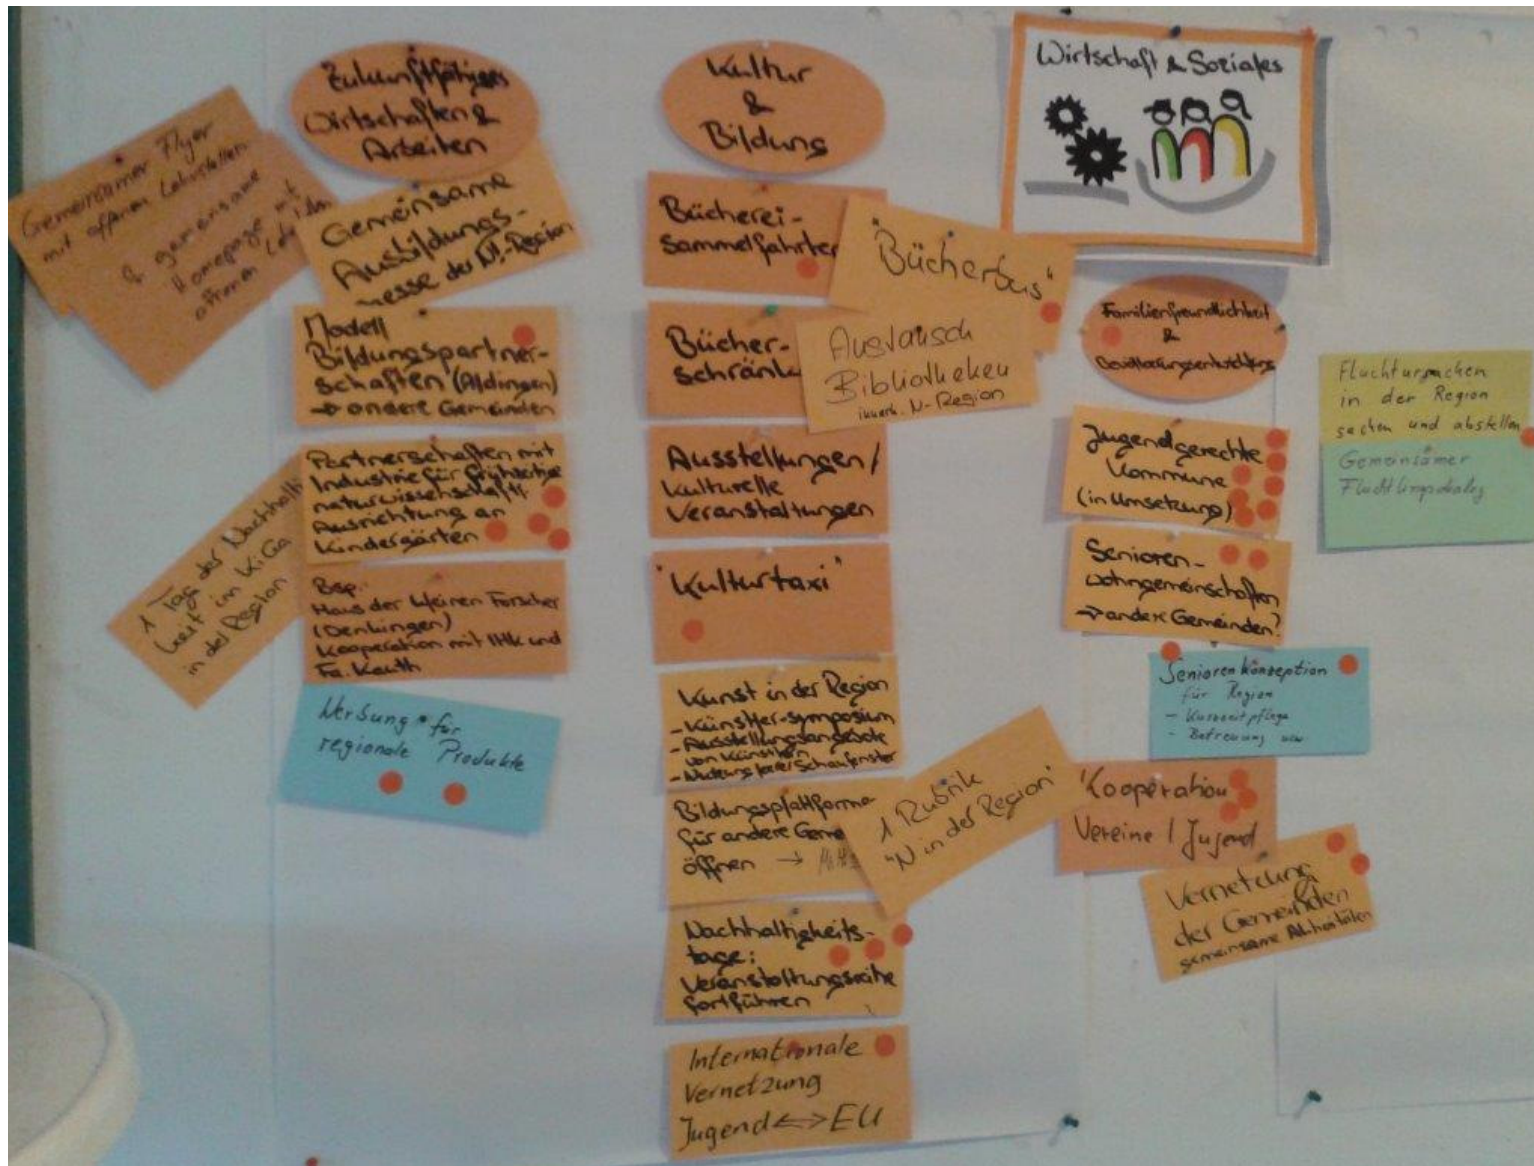 Wirtschaft & Soziales
Zukunftfähiges
Wirtschaften &
Arbeiten
Gemeinsamer Flyer
mit offenen Lehrstellen
& gemeinsame
Homepage mit
offenen
Gemeinsame
Ausbildungs-
messe der N!-Region
Modell
Bildungspartner-
schaften (Aldingen)
→ andere Gemeinden
Partnerschaften mit
Industrie für frühzeitige
naturwissenschaftl.
Ausrichtung an
Kindergärten
1 Tag der Nachhalti
keit im KiGa
in der Region
Bsp.:
Haus der kleinen Forscher
(Denkingen)
Kooperation mit IHK und
Fa. Kauth
Werbung für
regionale Produkte
Kultur
&
Bildung
Bücherei-
sammelfahrten
"Bücherbus"
Bücher-
schränke
Austausch
Bibliotheken
innerh. N-Region
Ausstellungen/
kulturelle
Veranstaltungen
"Kulturtaxi"
Kunst in der Region
- Künstler-symposium
- Ausstellungsangebote
von Künstlern
- Nutzung leerer Schaufenster
Bildungsplattforme
für andere Geme
öffnen →
1 Rubrik
"N in der Region"
Nachhaltigkeits-
tage:
Veranstaltungsreihe
fortführen
Internationale
Vernetzung
Jugend <=> EU
Familienfreundlichkeit
&
Bevölkerungsentwicklung
Jugendgerechte
Kommune
(in Umsetzung)
Senioren-
wohngemeinschaften
→ andere Gemeinden?
Seniorenkonzeption
für Region
- Kurzzeitpflege
- Betreuung usw
Kooperation
Vereine / Jugend
Vernetzung
der Gemeinden
gemeinsame Aktivitäten
Fluchtursachen
in der Region
suchen und abstellen
Gemeinsamer
Flüchtlingsdialog